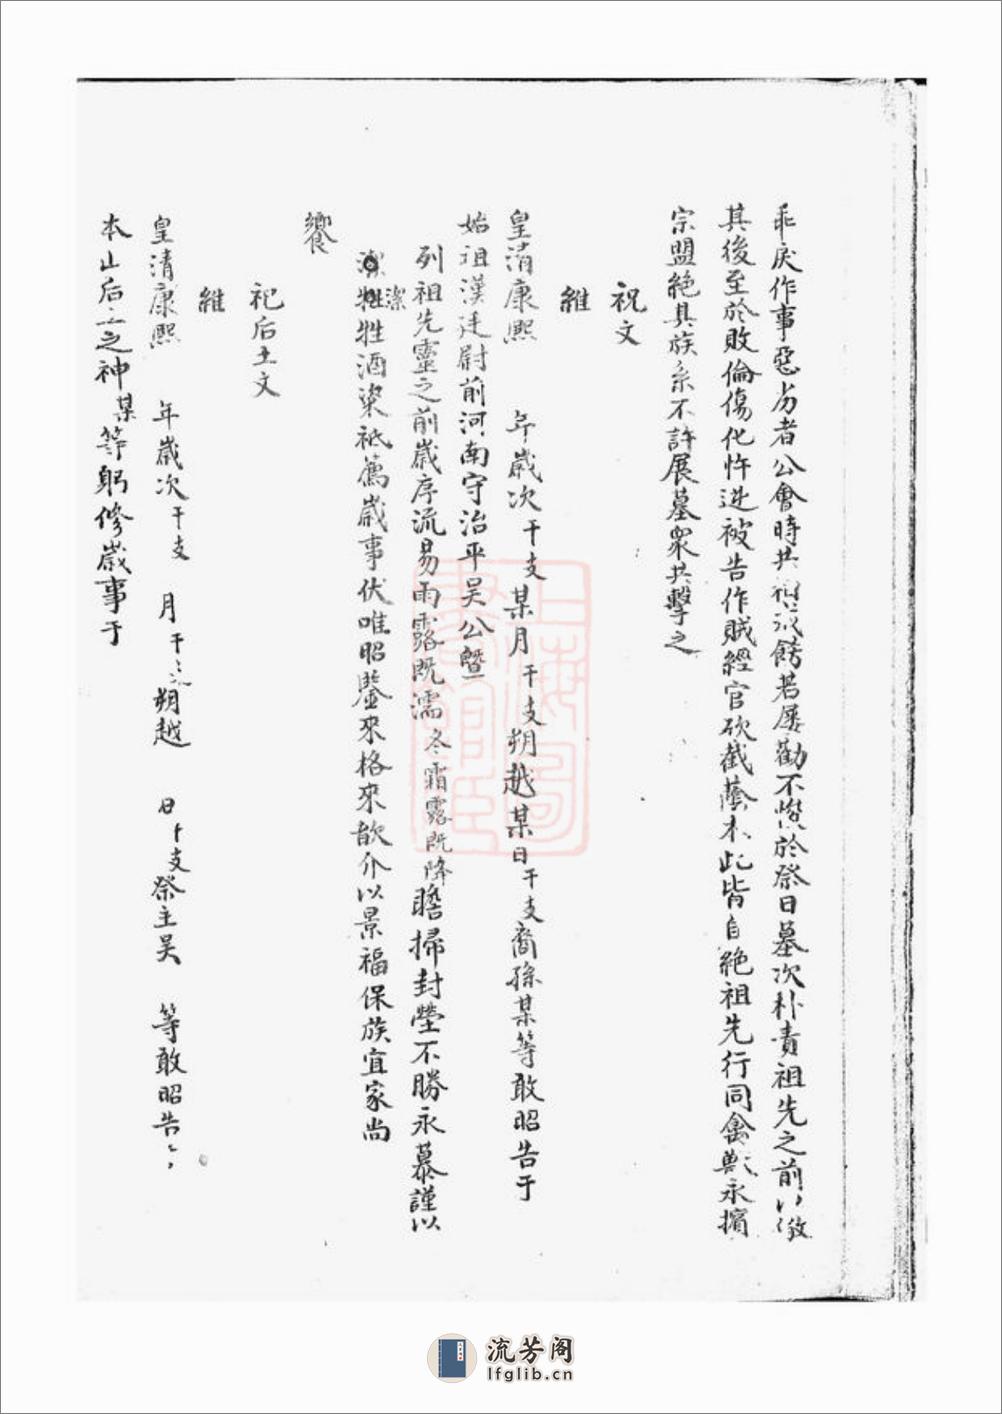 乖戾作事惡劣者公會時共戒飭若屢勸不悛於祭日墓次朴責祖先之前以儆
其後至於敗倫傷化忤逆被告作賊經官砍截蔭木此皆自絕祖先行同禽獸永擯
宗盟絕其族系不許展墓眾共擊之
祝文
維
皇清康熙 年歲次干支某月干支朔越某日干支裔孫某等敢昭告于
始祖漢廷尉前河南守治平吴公暨
列祖先靈之前歲序流易雨露既濡冬霜露既降瞻掃封塋不勝永慕謹以
潔牲牲酒粢祗薦歲事伏唯昭鑒來格來歆介以景福保族宜家尚
饗
祀后土文
維
皇清康熙 年歲次干支 月干支朔越 日干支祭主吴 等敢昭告
本山后土之神某等躬修歲事于
上海圖書館藏
流芳阁
lfglib.cn